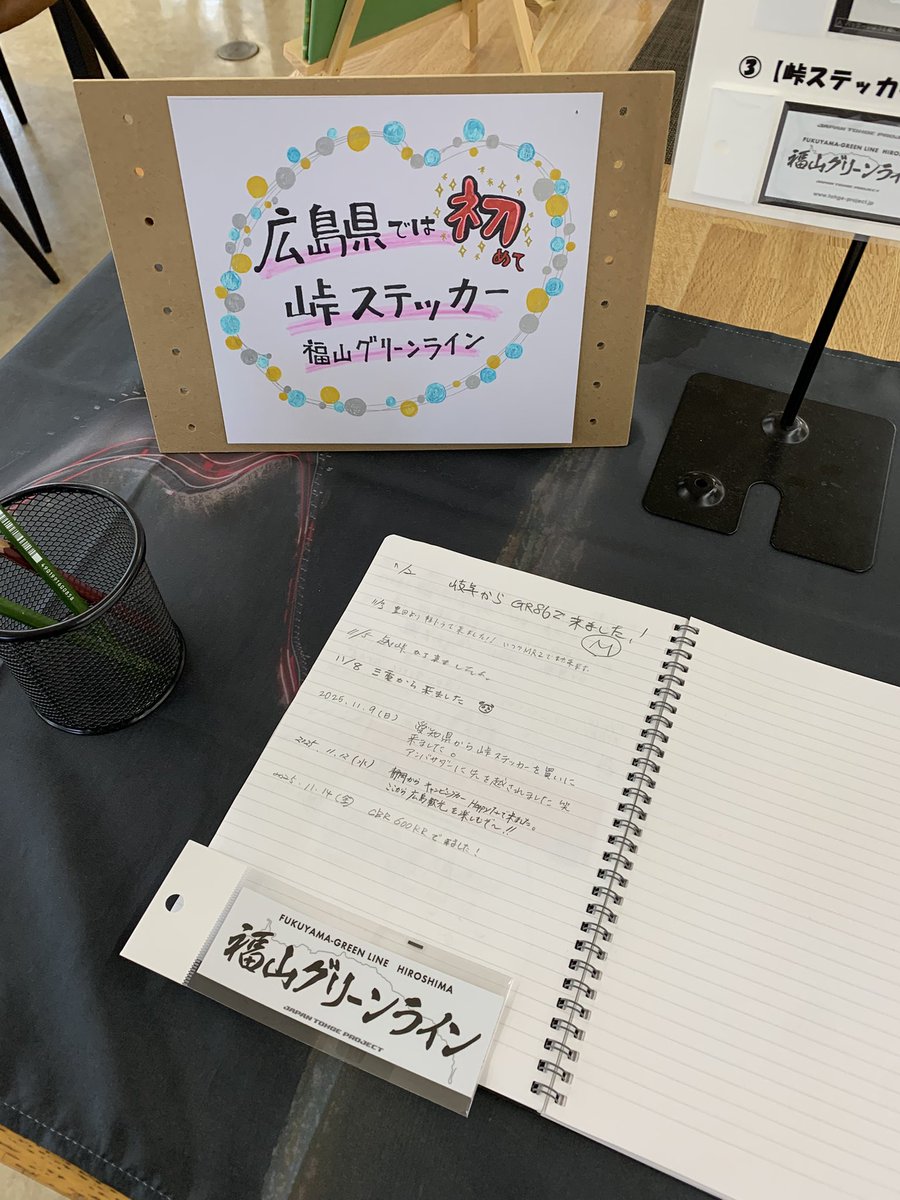 広島県では初めて
峠ステッカー
福山グリーンライン
③【峠ステッカ
JAPAN TOHGE PROJE
FUKUYAMA-GREEN LINE HIROS
福山グリーンライ
JAPAN TOHGE PROJECT
www.tohge-project.jp
岐阜から GR86で来ました!
11/3 豊田より軽トラで来ました!!
11/8 三重から来ました
2025.11.9(日) 愛知県から峠ステッカーを買いに
来ました。
アンバサダーに先を越されました 笑
2025.11.12(水) 静岡からキャンピングカー
ここから広島観光を楽しむぞ〜!!
2025.11.14(金) CBR600RRで来ました!
FUKUYAMA-GREEN LINE HIROSHIMA
福山グリーンライン
JAPAN TOHGE PROJECT